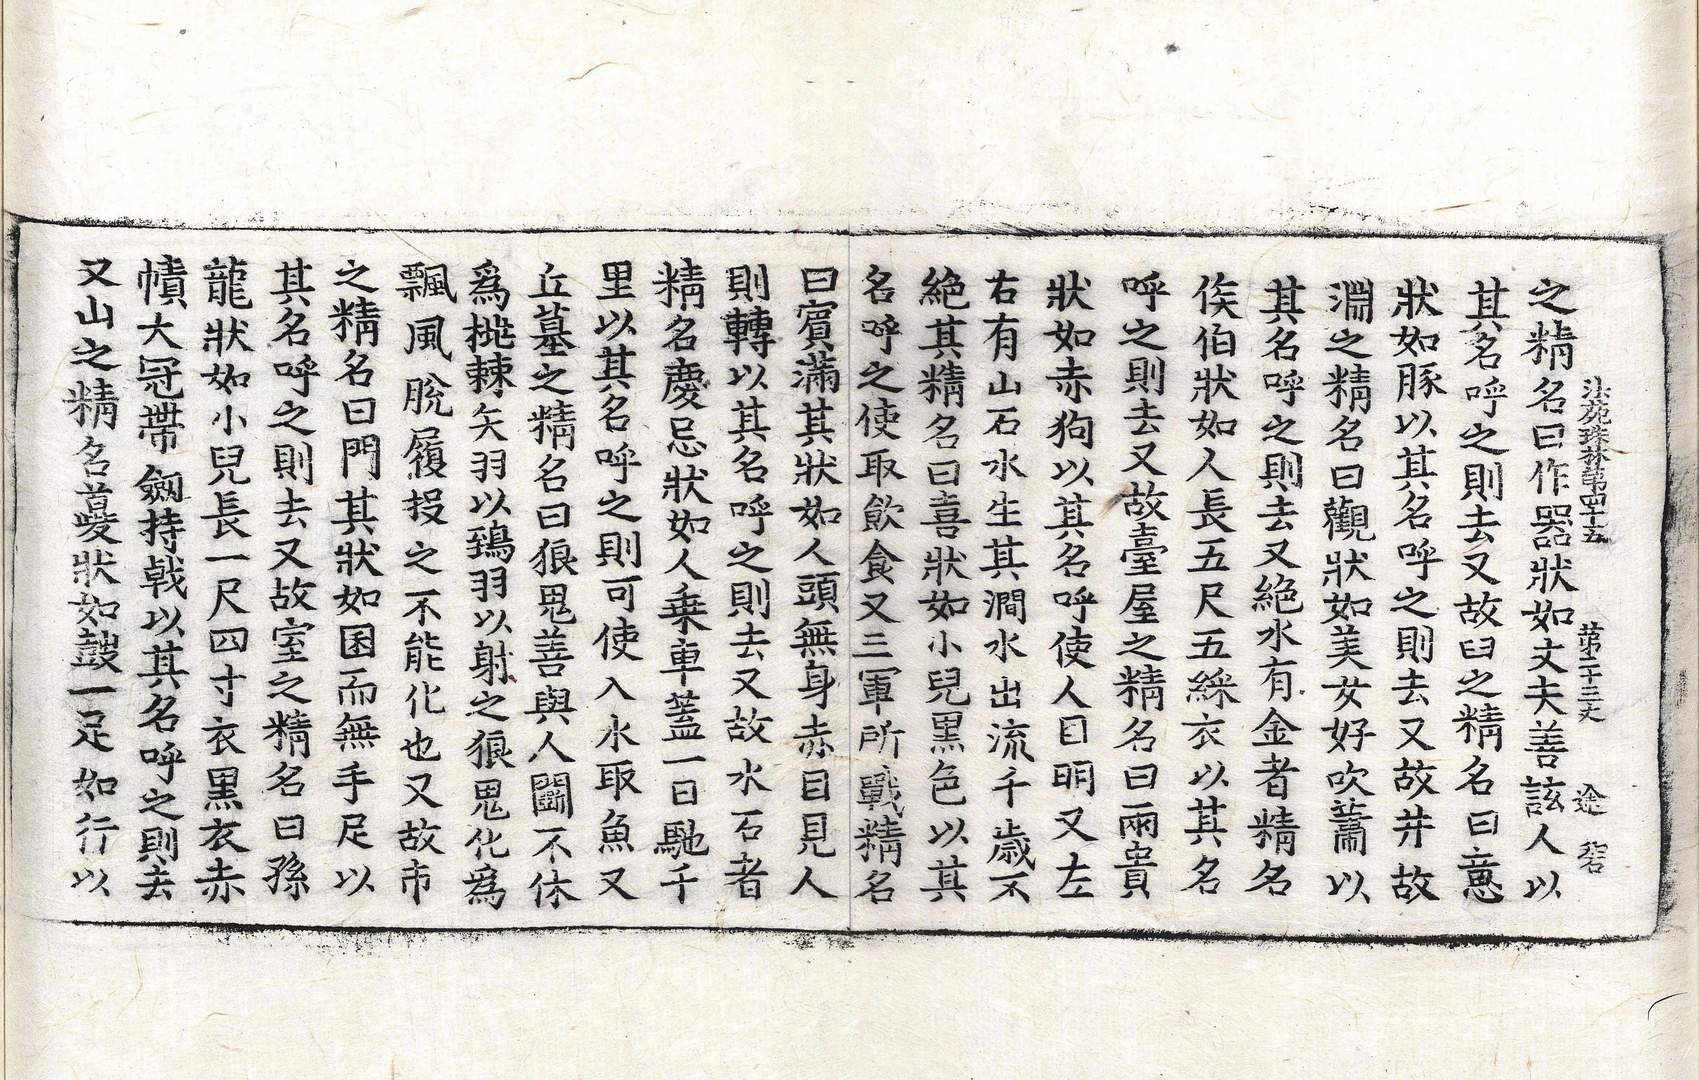 法苑珠林第四十五 第二十三丈 途
之精名曰作器狀如丈夫善該人以
其名呼之則去又故臼之精名曰意
狀如豚以其名呼之則去又故井故
淵之精名曰觀狀如美女好吹蕭以
其名呼之則去又絕水有金者精名
侯伯狀如人長五尺五綵衣以其名
呼之則去又故臺屋之精名曰兩貴
狀如赤狗以其名呼使人目明又左
右有山石水生其澗水出流千歲不
絕其精名曰喜狀如小兒黑色以其
名呼之使取飮食又三軍所戰精名
曰賓滿其狀如人頭無身赤目見人
則轉以其名呼之則去又故水石者
精名慶忌狀如人乗車蓋一日馳千
里以其名呼之則可使入水取魚又
丘墓之精名曰狼鬼善與人鬪不休
爲桃棘矢羽以鵄羽以射之狼鬼化爲
飄風脫履投之不能化也又故市
之精名曰門其狀如囷而無手足以
其名呼之則去又故室之精名曰孫
龍狀如小兒長一尺四寸衣黑衣赤
幘大冠帶劒持戟以其名呼之則去
又山之精名夔狀如鼓一足如行以